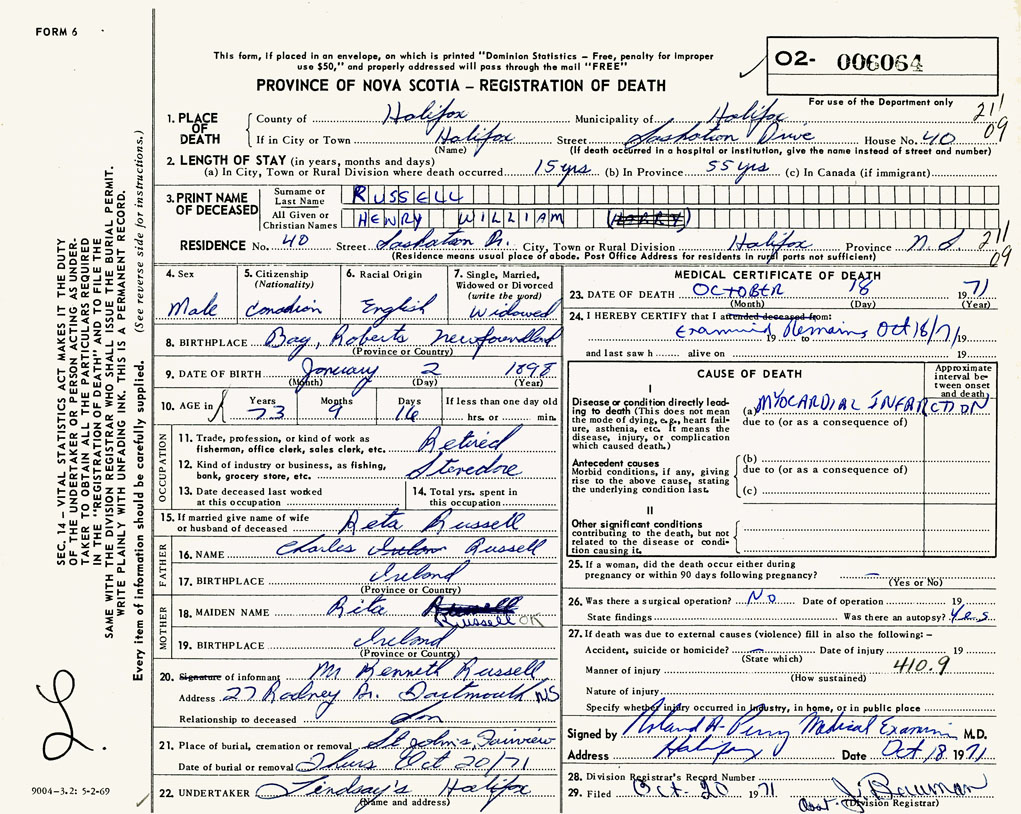 FORM 6
This form, if placed in an envelope, on which is printed "Dominion Statistics – Free, penalty for improper
use $50," and properly addressed will pass through the mail "FREE"
O2- 006064
For use of the Department only
PROVINCE OF NOVA SCOTIA – REGISTRATION OF DEATH
211
09
1. PLACE OF DEATH
County of Halifax Municipality of Halifax
If in City or Town Halifax Street Saskatoon Drive House No. 40
(Name) (If death occurred in a hospital or institution, give the name instead of street and number)
2. LENGTH OF STAY (in years, months and days)
(a) In City, Town or Rural Division where death occurred 15 yrs (b) In Province 55 yrs (c) In Canada (if immigrant)
3. PRINT NAME OF DECEASED
Surname or Last Name RUSSELL
All Given or Christian Names HENRY WILLIAM (HARRY)
RESIDENCE No. 40 Street Saskatoon Dr. City, Town or Rural Division Halifax Province N.S
(Residence means usual place of abode. Post Office Address for residents in rural parts not sufficient)
211
09
4. Sex
Male
5. Citizenship (Nationality)
Canadian
6. Racial Origin
English
7. Single, Married, Widowed or Divorced (write the word)
Widowed
8. BIRTHPLACE Bay Roberts Newfoundland
(Province or Country)
9. DATE OF BIRTH January 2 1898
(Month) (Day) (Year)
10. AGE in Years 73 Months 9 Days 16 If less than one day old hrs. or min.
OCCUPATION
11. Trade, profession, or kind of work as fisherman, office clerk, sales clerk, etc. Retired
12. Kind of industry or business, as fishing, bank, grocery store, etc. Stevedore
13. Date deceased last worked at this occupation
14. Total yrs. spent in this occupation
15. If married give name of wife or husband of deceased Reta Russell
FATHER
16. NAME Charles Russell
17. BIRTHPLACE Ireland
(Province or Country)
MOTHER
18. MAIDEN NAME Rita Russell OK
19. BIRTHPLACE Ireland
(Province or Country)
20. Signature of informant Mr Kenneth Russell
Address 27 Rodney Dr. Dartmouth NS
Relationship to deceased Son
21. Place of burial, cremation or removal St John's, Fairview
Date of burial or removal Thurs Oct 20/71
22. UNDERTAKER Lindsay's Halifax
(Name and address)
MEDICAL CERTIFICATE OF DEATH
23. DATE OF DEATH OCTOBER 18 1971
(Month) (Day) (Year)
24. I HEREBY CERTIFY that I attended deceased from:
Examined Remains Oct 18/71
19 to 19
and last saw h alive on 19
CAUSE OF DEATH
Approximate interval between onset and death
I
Disease or condition directly leading to death (This does not mean the mode of dying, e.g., heart failure, asthenia, etc. It means the disease, injury, or complication which caused death.)
(a) MYOCARDIAL INFARCTION
due to (or as a consequence of)
Antecedent causes
Morbid conditions, if any, giving rise to the above cause, stating the underlying condition last.
(b)
due to (or as a consequence of)
(c)
II
Other significant conditions contributing to the death, but not related to the disease or condition causing it.
25. If a woman, did the death occur either during pregnancy or within 90 days following pregnancy? —
(Yes or No)
26. Was there a surgical operation? No Date of operation 19
State findings Was there an autopsy? Yes
27. If death was due to external causes (violence) fill in also the following: –
Accident, suicide or homicide? — Date of injury 19
(State which)
Manner of injury 410.9
(How sustained)
Nature of injury
Specify whether injury occurred in industry, in home, or in public place
Signed by Roland A. Perry Medical Examin M.D.
Address Halifax Date Oct 18 1971
28. Division Registrar's Record Number
29. Filed Oct-20 1971 Asst. J. Bauman
(Division Registrar)
SEC. 14 – VITAL STATISTICS ACT MAKES IT THE DUTY
OF THE UNDERTAKER OR PERSON ACTING AS UNDER-
TAKER TO OBTAIN ALL THE PARTICULARS REQUIRED
IN THE "REGISTRATION OF DEATH" AND TO FILE THE
SAME WITH THE DIVISION REGISTRAR WHO SHALL ISSUE THE BURIAL PERMIT.
WRITE PLAINLY WITH UNFADING INK. THIS IS A PERMANENT RECORD.
Every item of information should be carefully supplied. (See reverse side for instructions.)
9004-3.2: 5-2-69